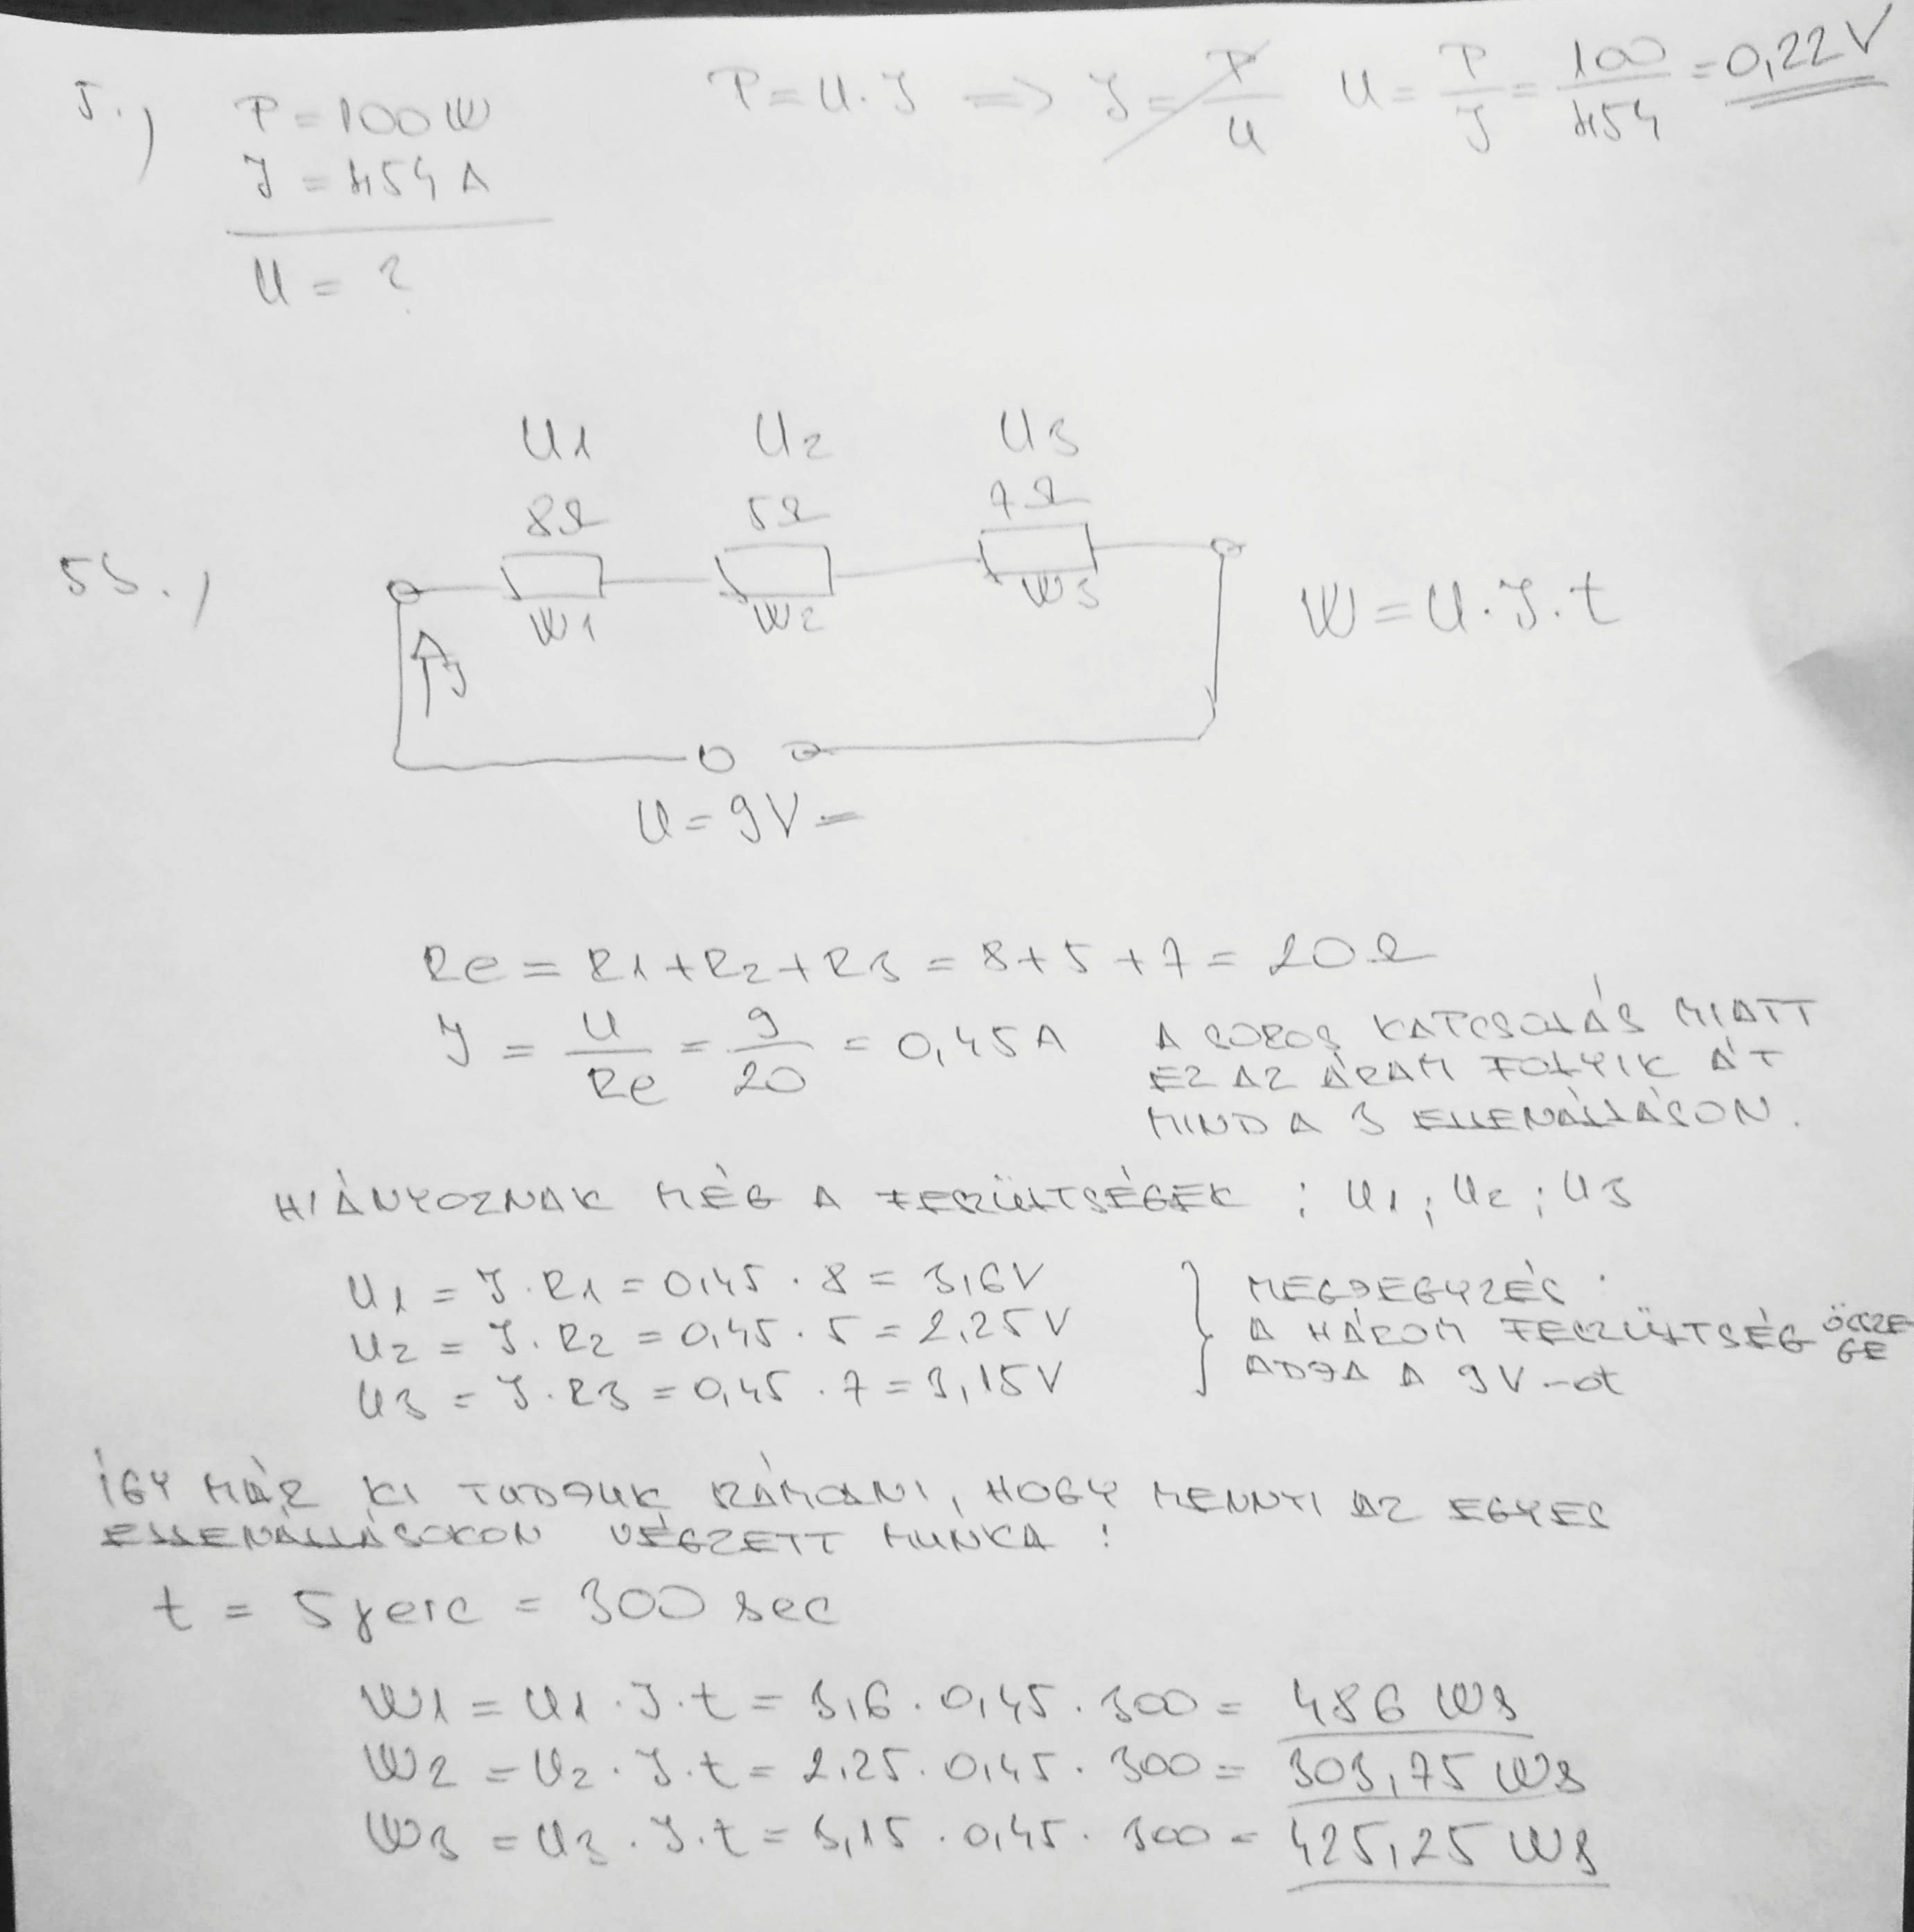 5.,
P = 100 W
P = U · I => I = P/U U = P/I = 100/454 = 0,22 V
I = 454 A
U = ?
U1 U2 U3
8Ω 5Ω 7Ω
55.,
W1 W2 W3
W = U · I · t
I
U = 9V =
Re = R1 + R2 + R3 = 8 + 5 + 7 = 20 Ω
I = U/Re = 9/20 = 0,45 A
A SOROS KAPCSOLÁS MIATT
EZ AZ ÁRAM FOLYIK ÁT
MIND A 3 ELLENÁLLÁSON.
HIÁNYOZNAK MÉG A FESZÜLTSÉGEK : U1 ; U2 ; U3
U1 = I · R1 = 0,45 · 8 = 3,6 V
U2 = I · R2 = 0,45 · 5 = 2,25 V
U3 = I · R3 = 0,45 · 7 = 3,15 V
MEGJEGYZÉS :
A HÁROM FESZÜLTSÉG ÖSSZEGE
ADJA A 9V-ot
ÍGY MÁR KI TUDJUK SZÁMOLNI, HOGY MENNYI AZ EGYES
ELLENÁLLÁSOKON VÉGZETT MUNKA :
t = 5 perc = 300 sec
W1 = U1 · I · t = 3,6 · 0,45 · 300 = 486 Ws
W2 = U2 · I · t = 2,25 · 0,45 · 300 = 303,75 Ws
W3 = U3 · I · t = 3,15 · 0,45 · 300 = 425,25 Ws